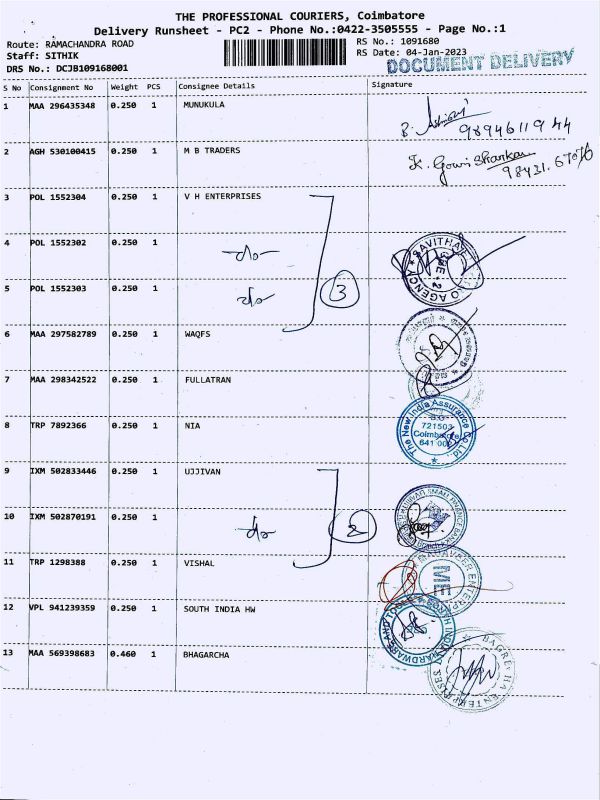 THE PROFESSIONAL COURIERS, Coimbatore
Delivery Runsheet - PC2 - Phone No.:0422-3505555 - Page No.:1
Route: RAMACHANDRA ROAD
RS No.: 1091680
Staff: SITHIK
RS Date: 04-Jan-2023
DRS No.: DCJB109168001
DOCUMENT DELIVERY
S No Consignment No Weight PCS Consignee Details Signature
1 MAA 296435348 0.250 1 MUNUKULA
9894611944
2 AGH 530100415 0.250 1 M B TRADERS
K. Gowri Shankar
98431.67076
3 POL 1552304 0.250 1 V H ENTERPRISES
4 POL 1552302 0.250 1
-do-
5 POL 1552303 0.250 1
do
3
6 MAA 297582789 0.250 1 WAQFS
7 MAA 298342522 0.250 1 FULLATRAN
8 TRP 7892366 0.250 1 NIA
The New India Assurance Co. Ltd.
721503
Coimbatore
9 IXM 502833446 0.250 1 UJJIVAN
10 IXM 502870191 0.250 1
-do-
2
11 TRP 1298388 0.250 1 VISHAL
ME
12 VPL 941239359 0.250 1 SOUTH INDIA HW
13 MAA 569398683 0.460 1 BHAGARCHA